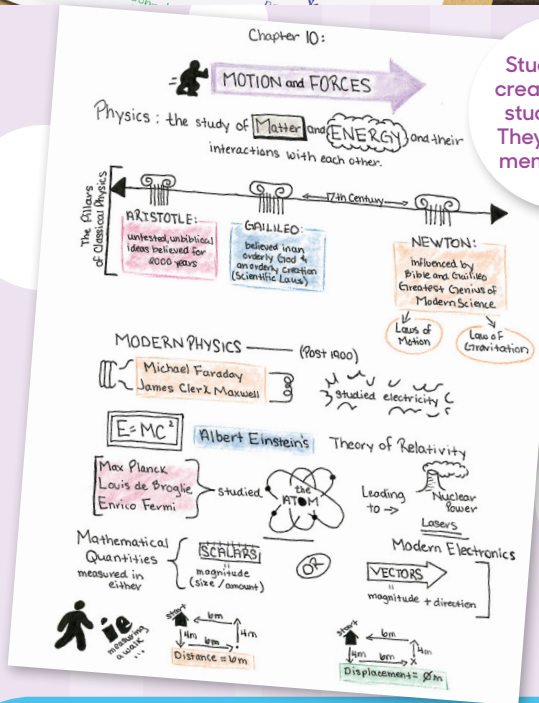 Chapter 10:
MOTION and FORCES
Physics: the study of Matter and ENERGY and their
interactions with each other.
The Pillars
of Classical Physics
17th Century
ARISTOTLE:
untested, unbiblical
ideas believed for
2000 years
GAILILEO:
believed in an
orderly God &
an orderly creation
(Scientific Laws)
NEWTON:
influenced by
Bible and Gailileo
Greatest Genius of
Modern Science
Laws of
Motion
Law of
Gravitation
MODERN PHYSICS (Post 1900)
Michael Faraday
James Clerk Maxwell
studied electricity
E=MC²
Albert Einstein's Theory of Relativity
Max Planck
Louis de Broglie
Enrico Fermi
studied
the
ATOM
Leading
to →
Nuclear
Power
Lasers
Modern Electronics
Mathematical
Quantities
measured in
either
SCALARS
=
magnitude
(size/amount)
OR
VECTORS
=
magnitude + direction
ie
measuring
a walk
...
start
← 6m
↓4m
↑4m
6m →
Distance = 6m
start
← 6m
↓4m
↑4m
6m → x
Displacement = Øm
Stu
crea
stu
They
men